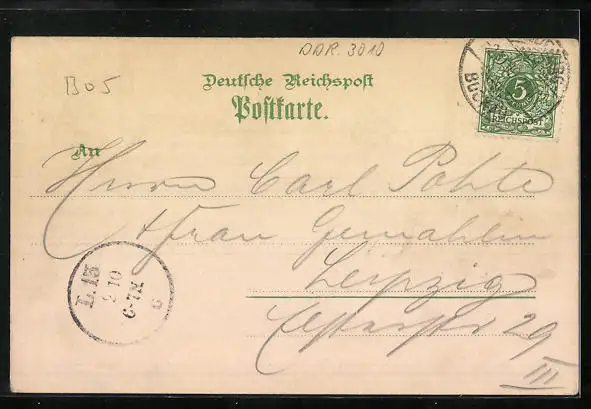 DDR. 3010
B05
Deutsche Reichspost
Postkarte.
5
REICHSPOST
An
Herrn Carl Pohle
+ Frau Gemahlin
Leipzig
29
III
L. 13
2 10
6-7N
c